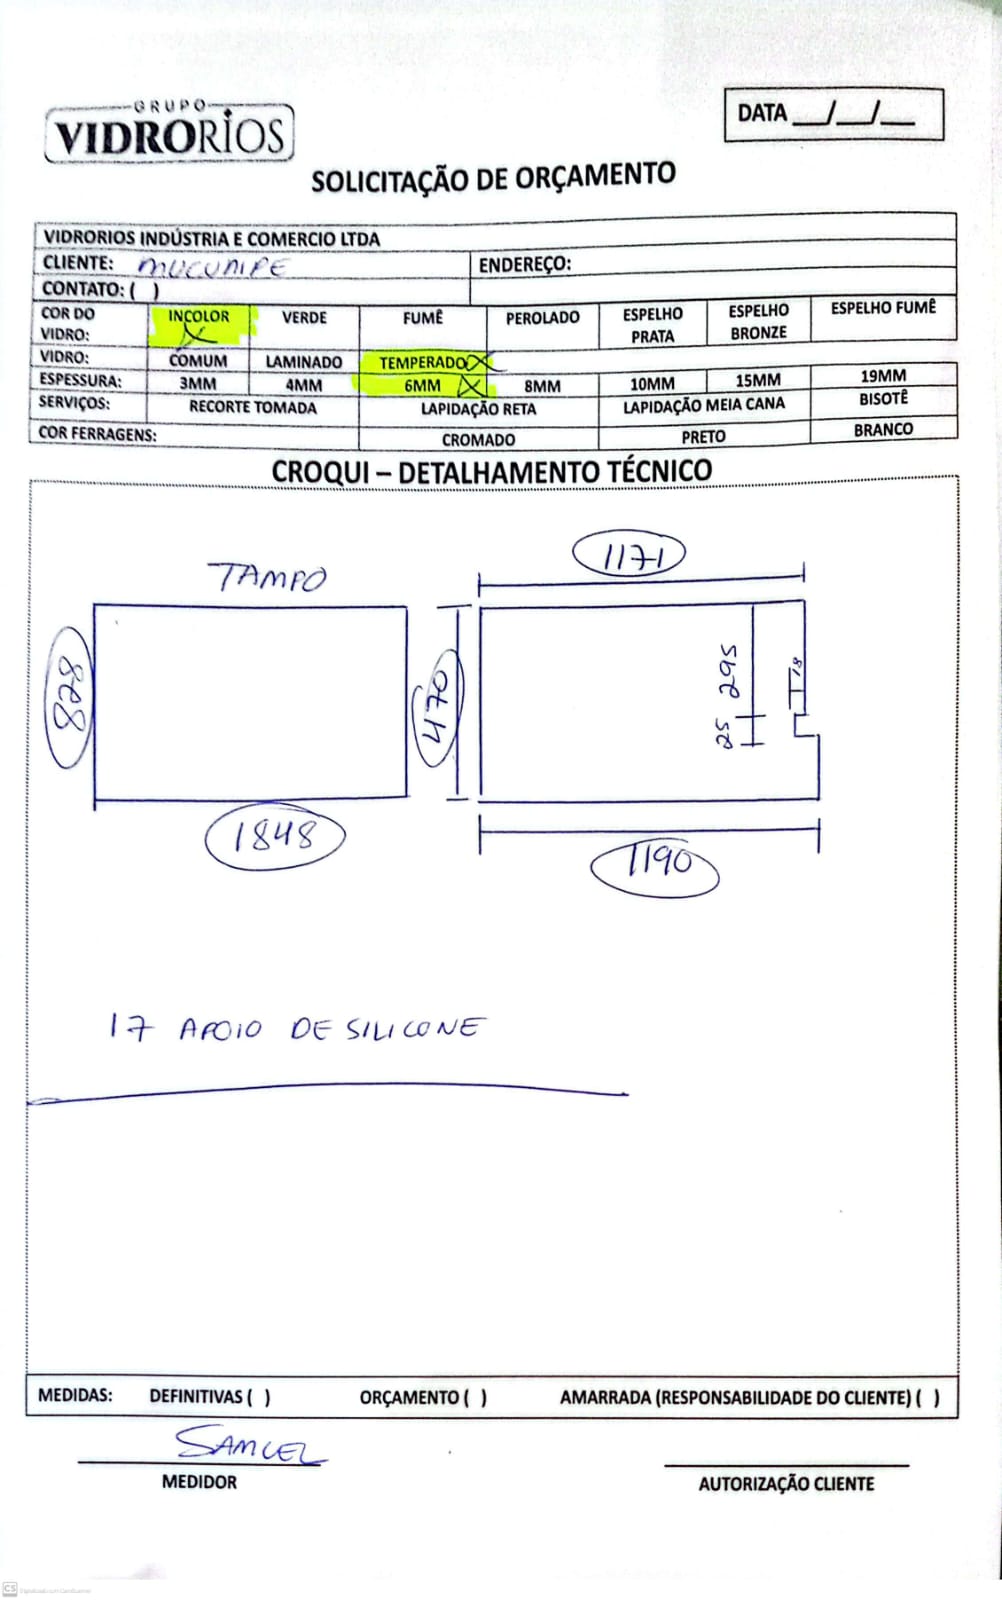 GRUPO
VIDRORIOS
DATA __/__/__
SOLICITAÇÃO DE ORÇAMENTO
VIDRORIOS INDÚSTRIA E COMERCIO LTDA
CLIENTE: MUCURIPE ENDEREÇO:
CONTATO: ( )
COR DO VIDRO: INCOLOR X VERDE FUMÊ PEROLADO ESPELHO PRATA ESPELHO BRONZE ESPELHO FUMÊ
VIDRO: COMUM LAMINADO TEMPERADO X
ESPESSURA: 3MM 4MM 6MM X 8MM 10MM 15MM 19MM
SERVIÇOS: RECORTE TOMADA LAPIDAÇÃO RETA LAPIDAÇÃO MEIA CANA BISOTÊ
COR FERRAGENS: CROMADO PRETO BRANCO
CROQUI – DETALHAMENTO TÉCNICO
1171
TAMPO
828
470
295
18
25
1848
1190
17 APOIO DE SILICONE
MEDIDAS: DEFINITIVAS ( ) ORÇAMENTO ( ) AMARRADA (RESPONSABILIDADE DO CLIENTE) ( )
SAMUEL
MEDIDOR
AUTORIZAÇÃO CLIENTE
CS Digitalizado com CamScanner